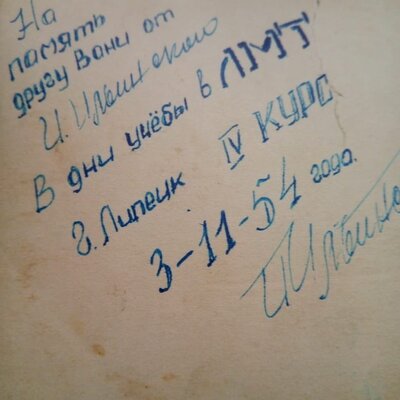 На
память
другу Вани от
И. Ильинского
В дни учёбы в ЛМТ
г. Липецк IV КУРС
3-11-54 года.